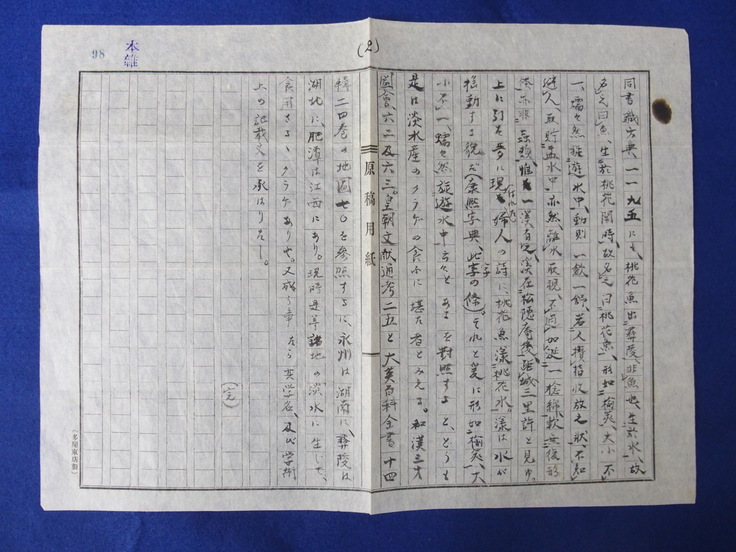 (2)
本雑
98
同書職方典、一一九五にも、桃花魚出彝陵、非魚也、生於水、故
名之曰魚、生於桃花開時、故名之曰桃花魚、形如楡莢、大小不
一、蠕々然游水中、動則一歛一舒、若人攢指收放之狀、不知
避人、取貯盂水中、亦然、離水
上に引た夢に現れた婦人の詩に、桃花魚漾桃花水。漾は水が
揺動する貌だ(康煕字典、此字の條)。それと爰に形如楡莢、大
小不一、蠕々然旋遊水中云々とあるを対照すると、どうも
是は淡水産のクラゲの食ふに堪た者とみえる。和漢三才
圖會、六二及六三。皇朝文献通考二五と大英百科全書十四
輯二四巻の地圖七〇を参照するに、永州は湖南に、彝陵は
湖北に、肥潭は江西にあり。現時是等諸地の淡水に生じて、
食用さるゝクラゲありや。又有る事なら其学名、及び学術
上の記載文を承はりたし。
(完)
原稿用紙
(多屋東店製)